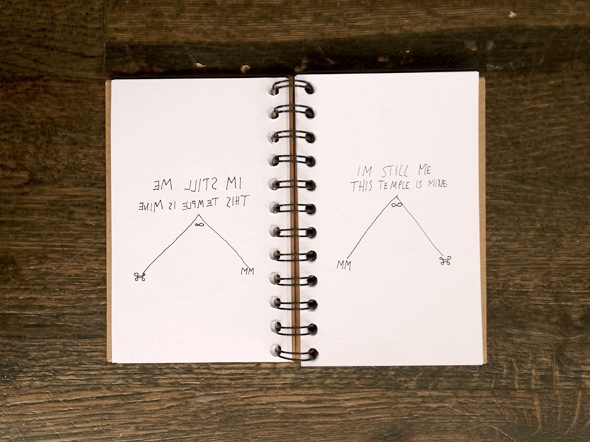 IM STILL ME
THIS TEMPLE IS MINE
∞
⌘ MM
IM STILL ME
THIS TEMPLE IS MINE
∞
MM ⌘